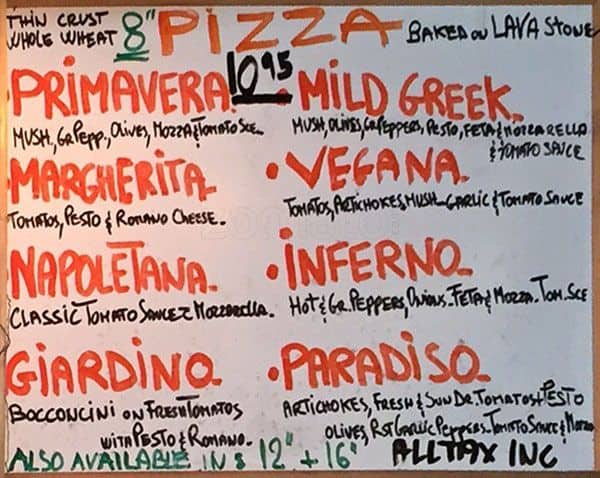 THIN CRUST
WHOLE WHEAT 8" PIZZA BAKED ON LAVA STONE
10.95
• PRIMAVERA
MUSH, GR.PEPP., OLIVES, MOZZA & TOMATO SCE.
• MILD GREEK.
MUSH, OLIVES, GR.PEPPERS, PESTO, FETA & MOZZARELLA
& TOMATO SAUCE
MARGHERITA
TOMATOS, PESTO & ROMANO CHEESE.
• VEGANA.
TOMATOS, ARTICHOKES, MUSH- GARLIC & TOMATO SAUCE
NAPOLETANA.
CLASSIC TOMATO SAUCE & MOZZARELLA.
• INFERNO
HOT & GR. PEPPERS, ONIONS- FETA & MOZZA. TOM. SCE
GIARDINO
BOCCONCINI ON FRESH TOMATOS
WITH PESTO & ROMANO.
• PARADISO
ARTICHOKES, FRESH & SUN DR. TOMATOS + PESTO
OLIVES, RST GARLIC PEPPERS. TOMATO SAUCE & MOZZA
ALSO AVAILABLE IN 12" + 16"
ALL TAX INC